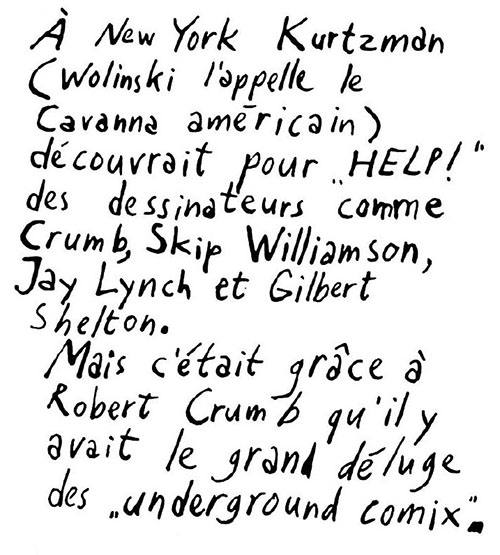 À New York Kurtzman
(Wolinski l'appelle le
Cavanna américain)
découvrait pour „HELP!"
des dessinateurs comme
Crumb, Skip Williamson,
Jay Lynch et Gilbert
Shelton.
Mais c'était grâce à
Robert Crumb qu'il y
avait le grand déluge
des „underground comix".